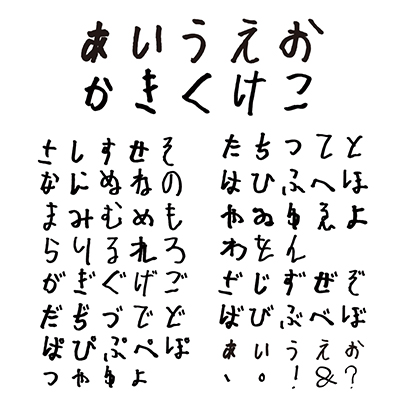 あいうえお
かきくけこ
さしすせそ
なにぬねの
まみむめも
らりるれろ
がぎぐげご
だぢづでど
ぱぴぷぺぽ
っゃゅょ
たちつてと
はひふへほ
やゐゆゑよ
わをん
ざじずぜぞ
ばびぶべぼ
ぁぃぅぇぉ
、。!&?